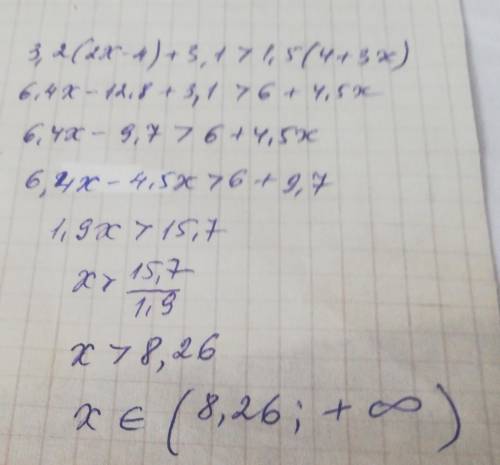 3,2(2x-4)+3,1>1,5(4+3x)
6,4x-12,8+3,1>6+4,5x
6,4x-9,7>6+4,5x
6,4x-4,5x>6+9,7
1,9x>15,7
x>15,7/1,9
x>8,26
x∈(8,26;+∞)